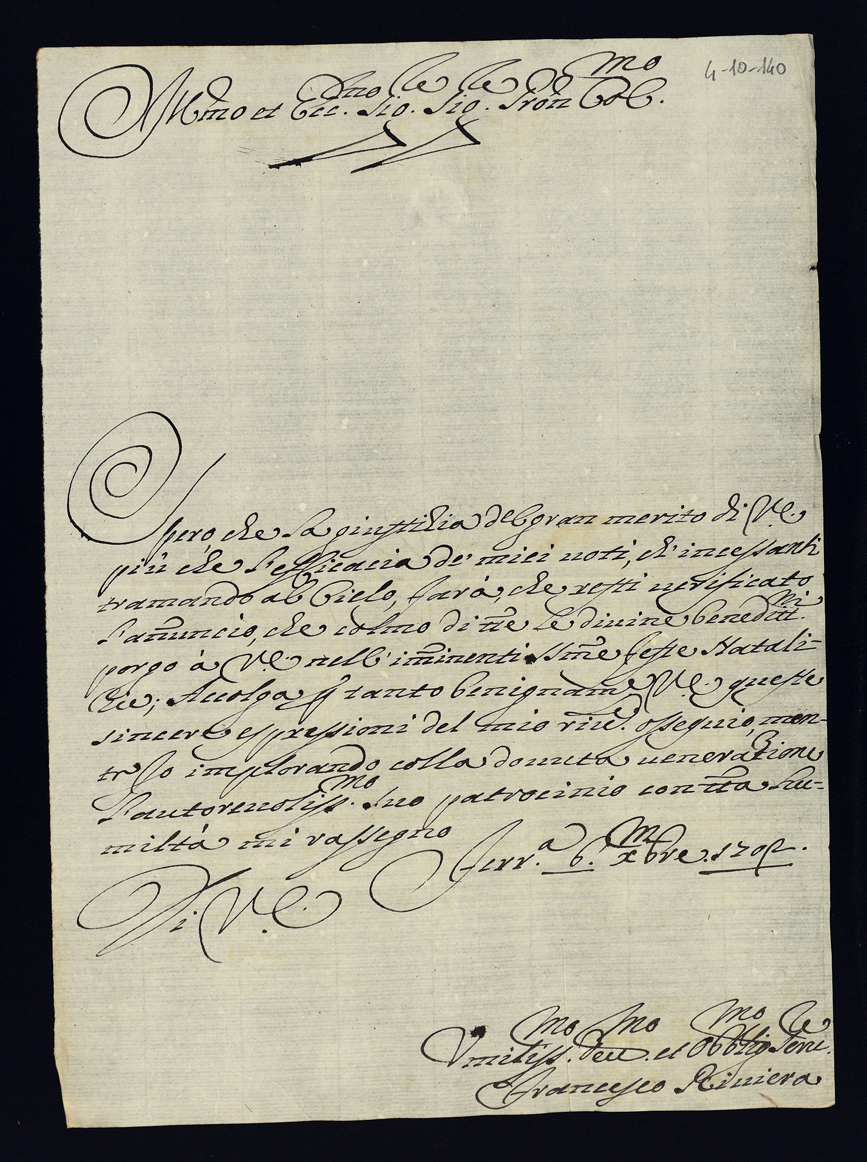 4-10-140
Ill.mo et Ecc.mo Sig.re Sig.re Pron Col.mo
Spero che la giustitia del gran merito di V.E.
più che l'efficacia de' miei uoti, ch'incessanti
tramando al Cielo, farà, che resti uerificato
l'añuncio, che colmo di tte le diuine bened.ni
porgo à V.E. nell'im̃inentissme feste Natali-
tie; Accolga p tanto benignam.e V.E. queste
sincere espressioni del mio riu. ossequio, men-
tr'Io implorando colla douuta ueneratione
l'autoreuoliss.mo suo patrocinio con tta hu-
miltà mi rassegno
Ferr.a 6. Xmbre.
Di V.E.
Vmiliss.mo deu.mo et Obblig.mo Seru.re
Francesco Riuiera